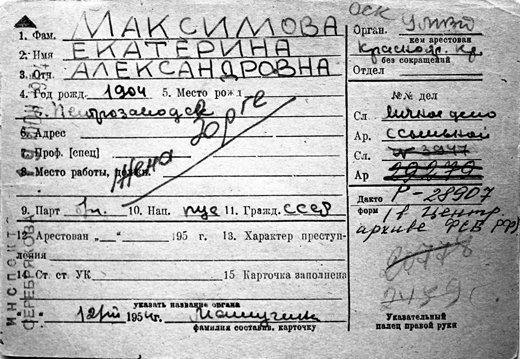 1. Фам. МАКСИМОВА
2. Имя ЕКАТЕРИНА
3. Отч. АЛЕКСАНДРОВНА
4. Год рожд. 1904 5. Место рожд
г. Петрозаводск
6. Адрес
7. Проф. [спец]
8. Место работы, должн.
Жена Зорге
9. Парт б/п. 10. Нац. рус 11. Гражд. СССР
12. Арестован „__“ 195 г. 13. Характер преступ-
ления
14. Ст. ст. УК 15. Карточка заполнена
указать название органа
1954 г.
фамилия составив. карточку
ИНСПЕКТ
СЕРЕБРЯКОВА
Орган.
кем арестован
Краснояр. Кр.
без сокращений
Отдел
№№ дел
Сл. личное дело
Ар. ссыльной
Сл. № 3947
Ар
Дакто Р-28907
форм (в Центр.
архиве ФСБ РФ)
Указательный
палец правой руки